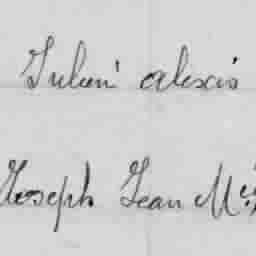 Julien alexis
Joseph Jean M